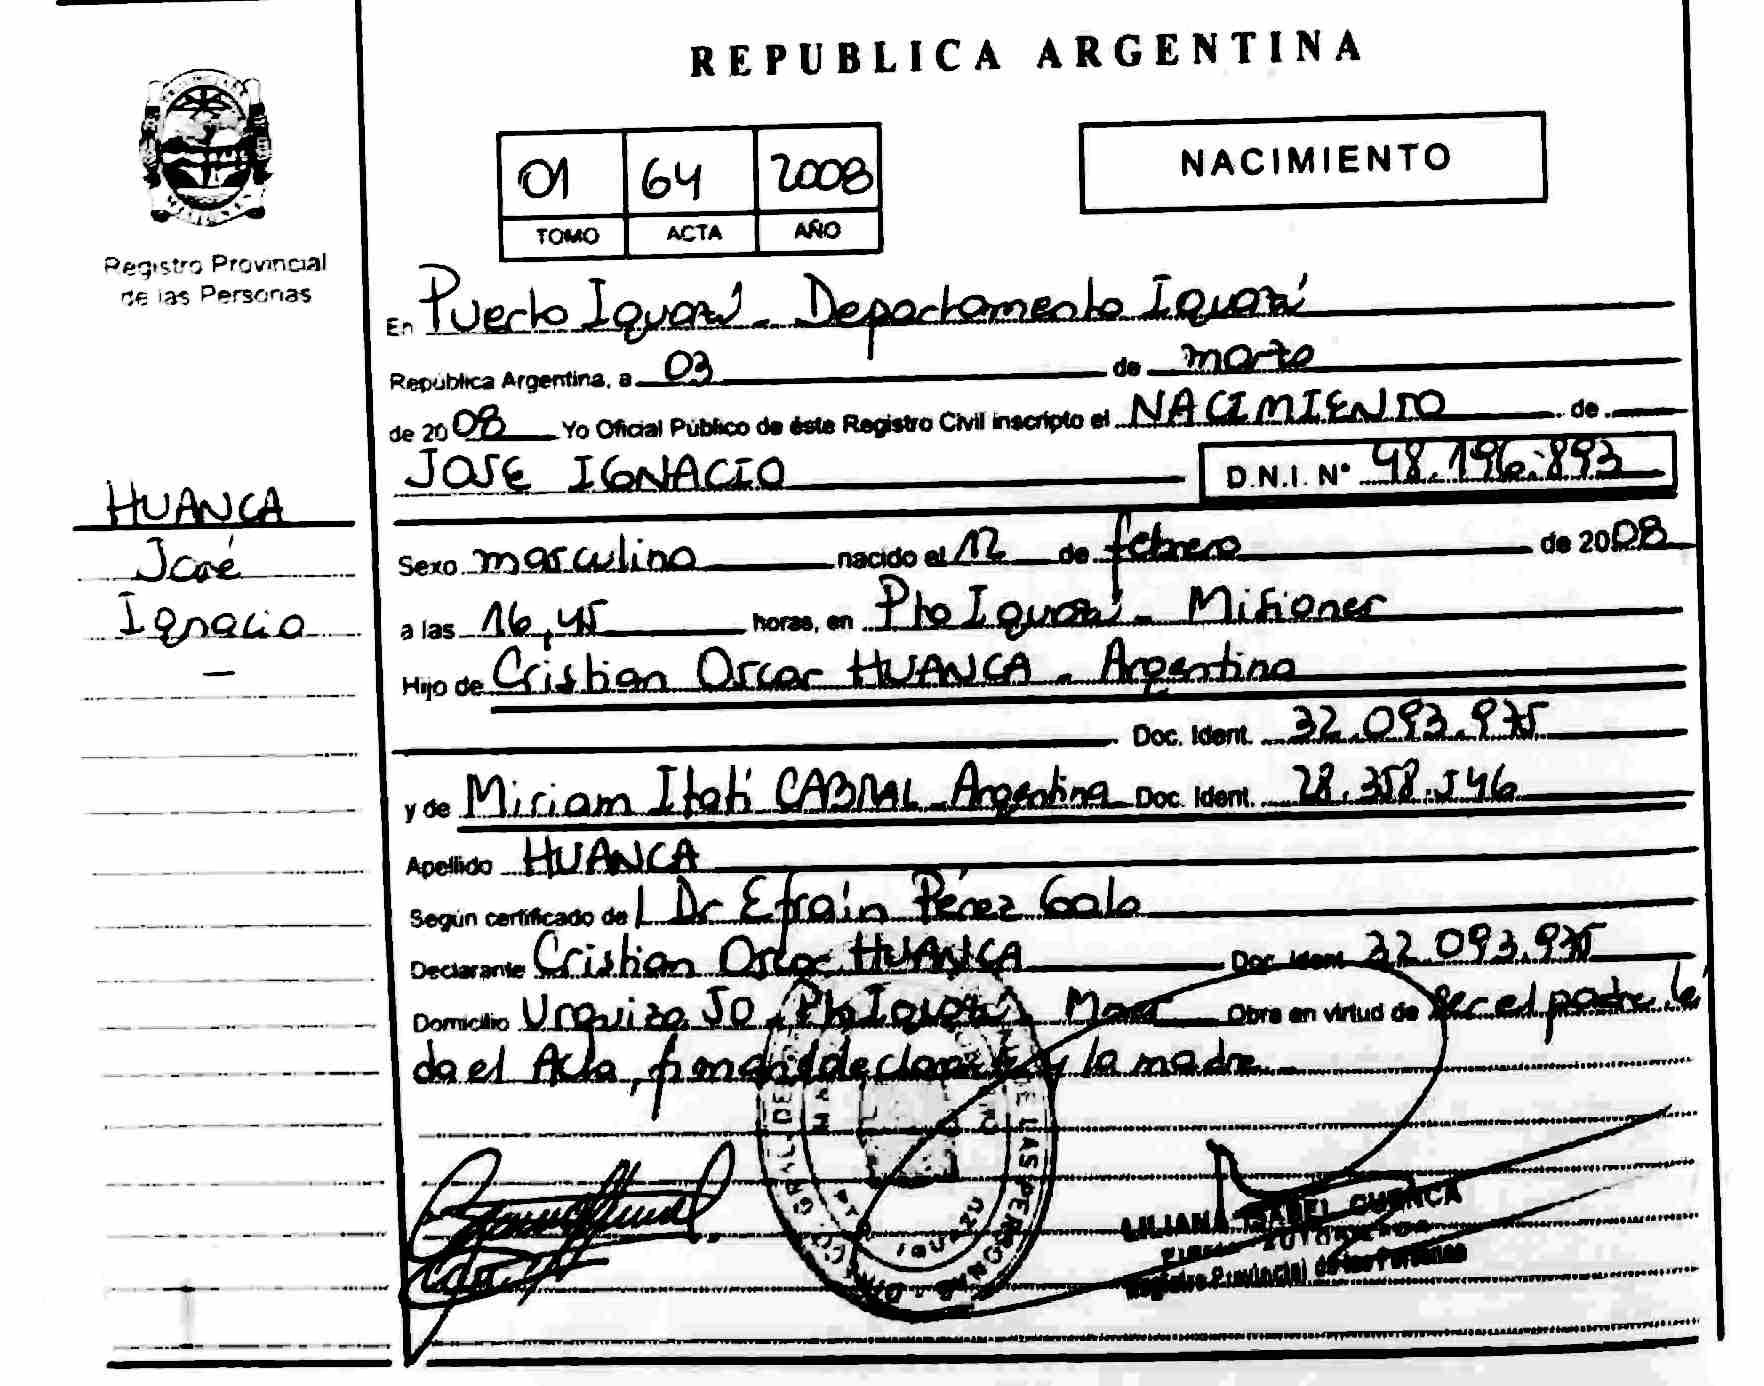 REPUBLICA ARGENTINA
01 64 2008
TOMO ACTA AÑO
NACIMIENTO
Registro Provincial
de las Personas
HUANCA
José
Ignacio
En Puerto Iguazú - Departamento Iguazú
República Argentina, a 03 de marzo
de 2008 Yo Oficial Público de éste Registro Civil inscripto el NACIMIENTO de
JOSE IGNACIO D.N.I. N° 48.196.893
Sexo masculino nacido el 12 de febrero de 2008
a las 16,45 horas, en Pto Iguazú - Misiones
Hijo de Cristian Oscar HUANCA - Argentino
Doc. Ident. 32.093.975
y de Miriam Itatí CABRAL Argentina Doc. Ident. 28.358.546
Apellido HUANCA
Según certificado de Dr Efraín Pérez Galo
Declarante Cristian Oscar HUANCA Doc. Ident 32.093.975
Domicilio Urquiza 50 Pto Iguazú Obra en virtud de ser el padre le
da el Acta, declarante y la madre.
LILIANA ISABEL CUENCA
Registro Provincial de las Personas